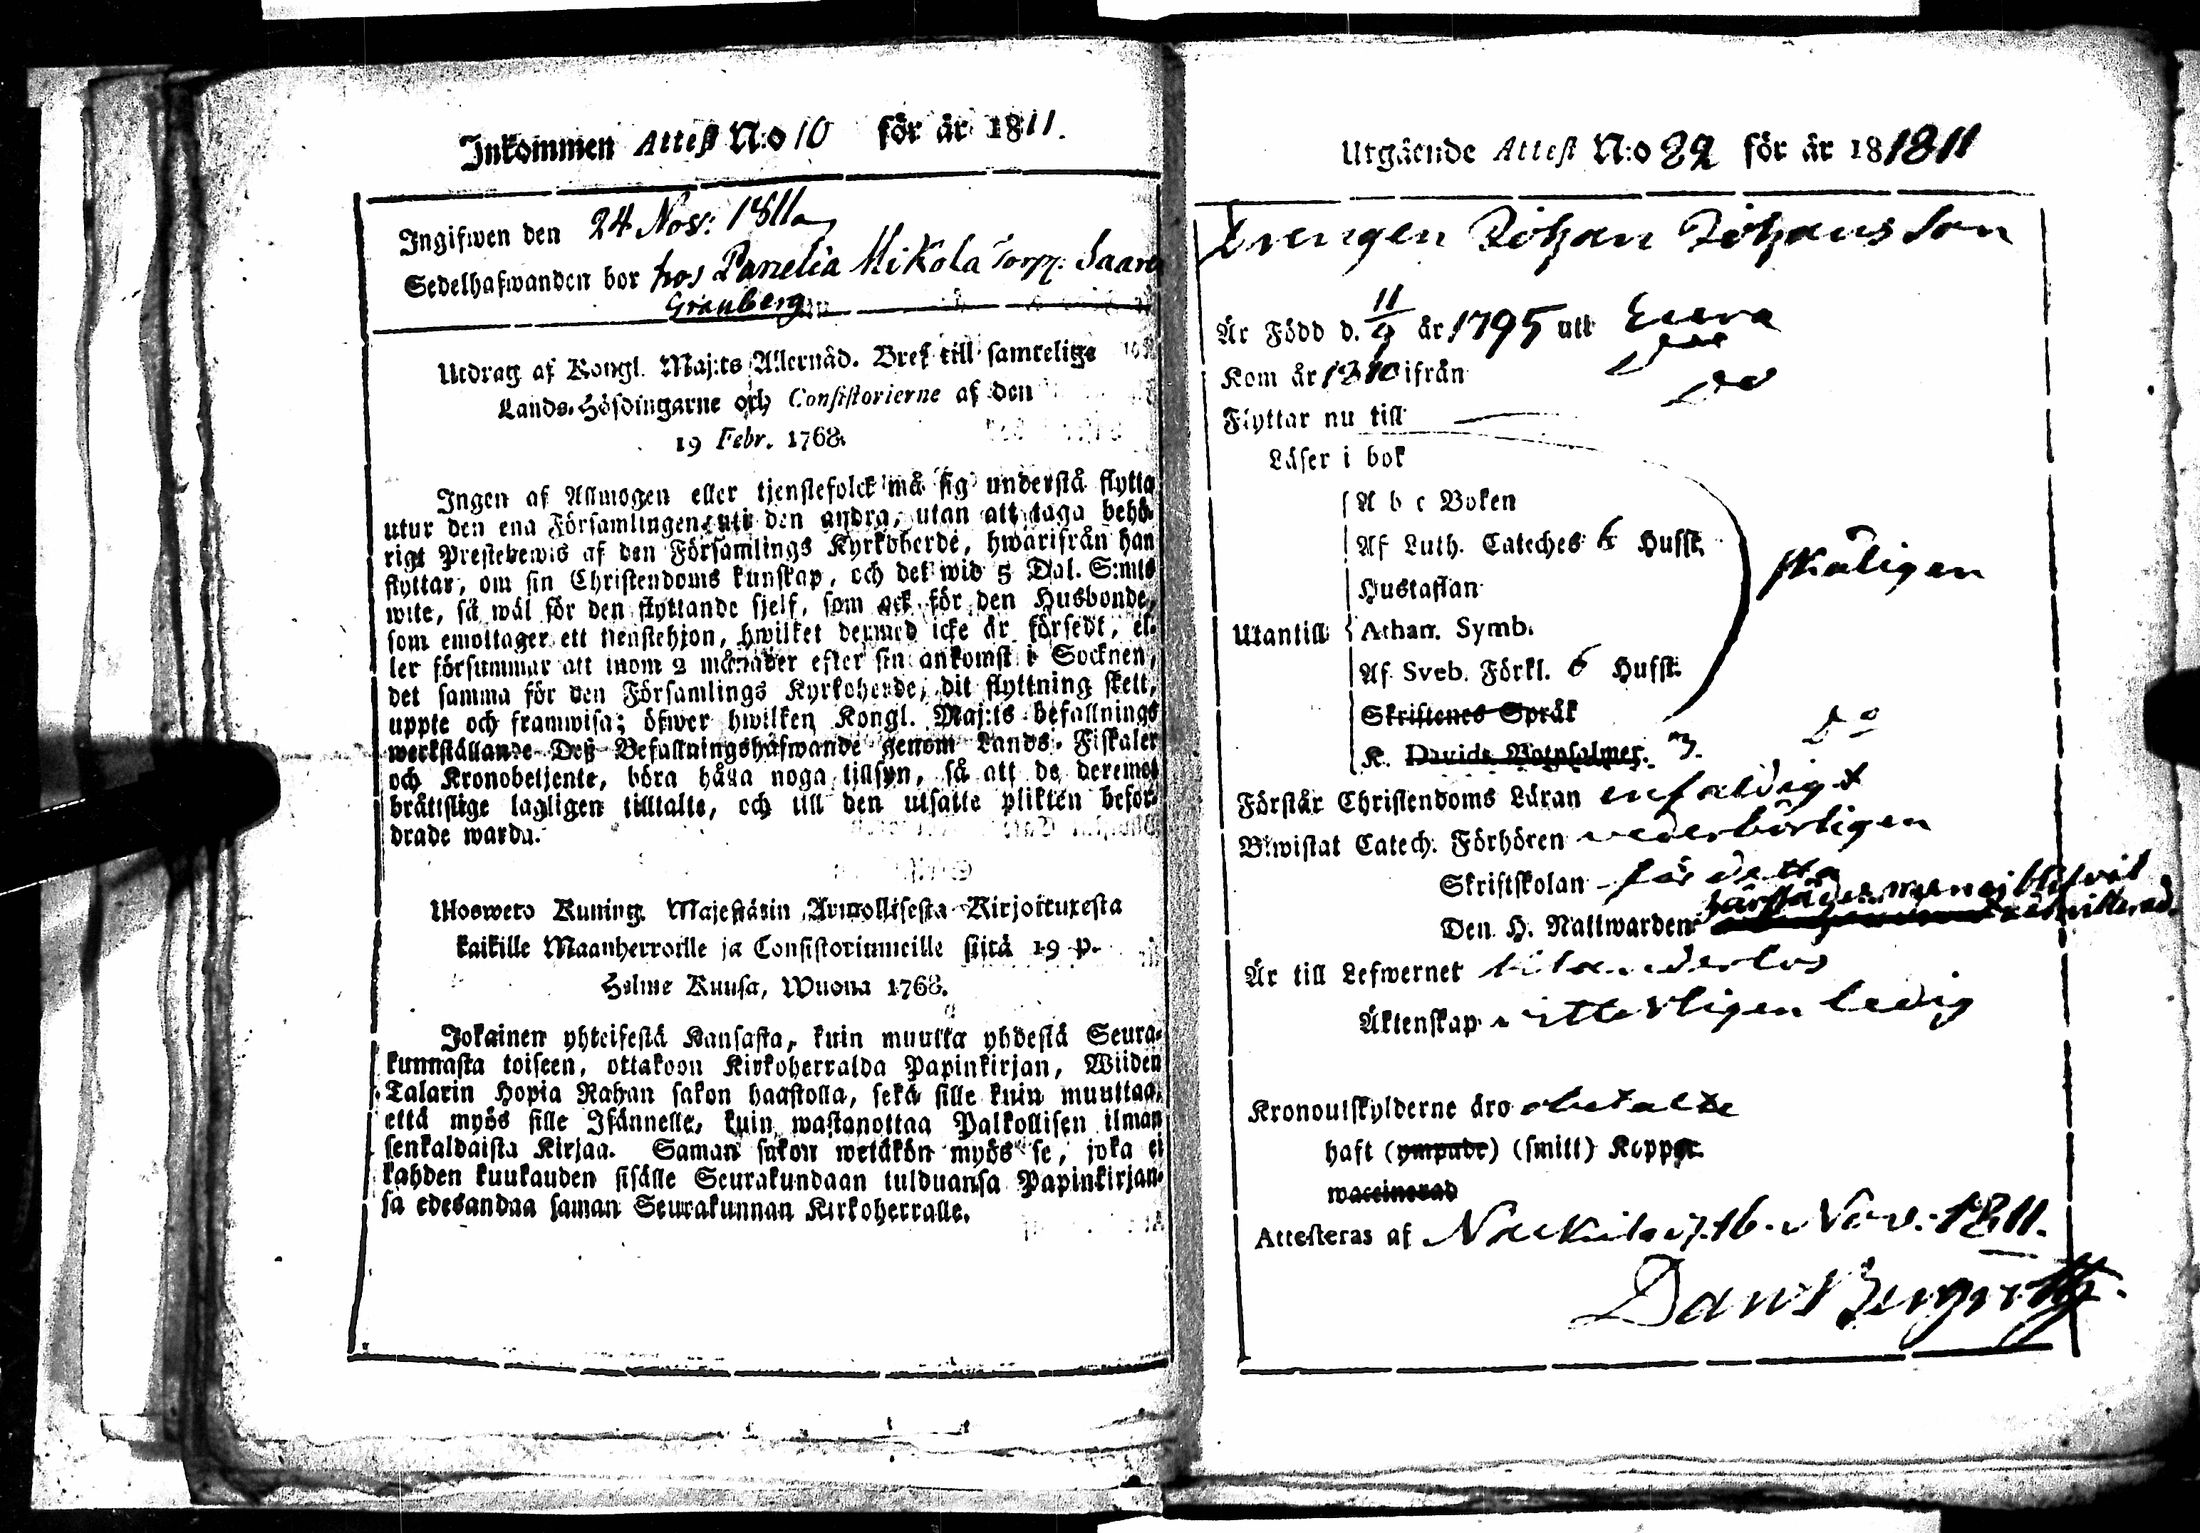 Inkommen Attest N:o 10 för år 1811.
Ingifwen den 24 Nov: 1811
Sedelhafwanden bor hos Panelia Mikola Torp: Saare
Granberg
Utdrag af Kongl. Maj:ts Allernåd. Bref till samtelige
Lands-Höfdingarne och Consistorierne af den
19 Febr. 1768.
Ingen af Allmogen eller tjenstefolck må sig understå flytta
utur den ena Församlingen uti den andra, utan att taga behö-
rigt Prestebewis af den Församlings Kyrkoherde, hwarifrån han
flyttar, om sin Christendoms kunskap, och det wid 5 Dal. S:mts
wite, så wäl för den flyttande sjelf, som ock för den Husbonde,
som emottager ett tienstehjon, hwilket dermed icke är försedt, el-
ler försummar att inom 2 månader efter sin ankomst i Socknen,
det samma för den Församlings Kyrkoherde, dit flyttning skett,
uppte och framwisa; öfwer hwilken Kongl. Maj:ts befallnings
werkställande Deß Befallningshafwande genom Lands-Fiskaler
och Kronobetjente, böra hålla noga tillsyn, så att de deremot
bråttslige lagligen tilltalte, och till den utsatte plikten befor-
drade warda.
Uloswero Kuning. Majestätin Armollisesta Kirjoituxesta
kaikille Maanherroille ja Consistoriumeille siitä 19 p.
Helme Kuusa, Wuonna 1768.
Jokainen yhteisestä Kansasta, kuin muutta yhdestä Seura-
kunnasta toiseen, ottakoon Kirkoherralda Papinkirjan, Wiiden
Talarin Hopia Rahan sakon haastolla, sekä sille kuin muuttaa,
että myös sille Isännelle, kuin wastanottaa Palkollisen ilman
senkaldaista Kirjaa. Saman sakon wetäkön myös se, joka ei
kahden kuukauden sisälle Seurakundaan tulduansa Papinkirjan-
sa edesandaa saman Seurakunnan Kirkoherralle.
Utgående Attest N:o 82 för år 18 1811
Drengen Johan Johansson
Är Född d. 11/9 år 1795 utt Eura
Kom år 1810 ifrån do
Flyttar nu till do
Läser i bok
A b c Boken
Af Luth. Cateches 6 Hufst.
Hustaflan
skäligen
Utantill Athan. Symb.
Af Sveb. Förkl. 6 Hufst.
Skriftenes Språk
K. Davids Botpsalmer. 3. Do
Förstår Christendoms Läran enfaldigt
Biwistat Catech. Förhören vederbörligen
Skriftskolan för detta
Den H. Nattwarden men ej blifvit admitterad.
Är till Lefwernet
Äktenskap witterligen ledig
Kronoutskylderne äro obetalte
haft (ympade) (smitt) Koppor.
waccinerad
Attesteras af Nackila d. 16. Nov. 1811.